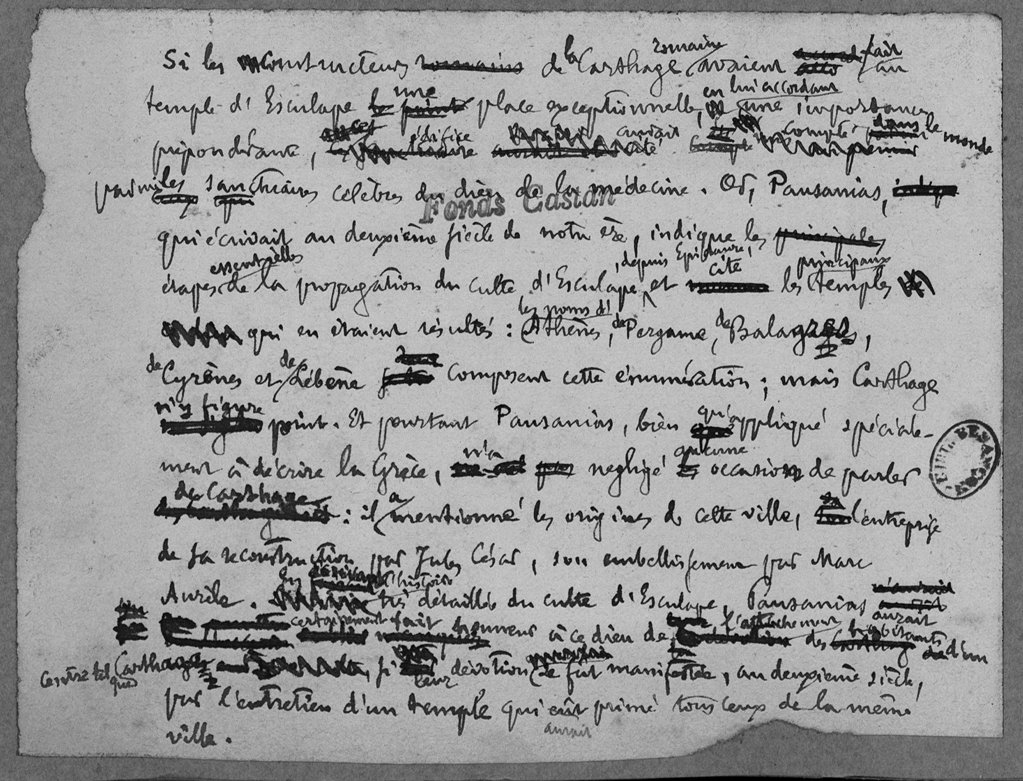 Si les constructeurs romains de la Carthage romaine avaient fait au
temple d'Esculape une place exceptionnelle, en lui accordant une importance
prépondérante, l'édifice aurait été compter dans le monde
parmi les sanctuaires célèbres du dieu de la médecine. Or, Pausanias,
Fonds Castan
qui écrivait au deuxième siècle de notre ère, indique les principales
étapes essentielles de la propagation du culte d'Esculape, depuis Epidaure, et cite les temples principaux
qui en étaient résultés : les noms d'Athènes, de Pergame, de Balagres,
de Cyrènes et de Lébène composent cette énumération ; mais Carthage
n'y figure point. Et pourtant Pausanias, bien qu'appliqué spéciale-
ment à décrire la Grèce, n'a pas négligé quelque occasion de parler
de Carthage : il a mentionné les origines de cette ville, l'entreprise
de sa reconstruction par Jules César, son embellissement par Marc
Aurèle. En l'histoire très détaillée du culte d'Esculape, Pausanias aurait
certainement fait honneur à ce dieu de l'attachement des habitants d'un
centre tel que Carthage, si leur dévotion se fût manifestée, au deuxième siècle,
par l'entretien d'un temple qui eût primé tous ceux de la même
aurait
ville.
BIBL. BESANÇON